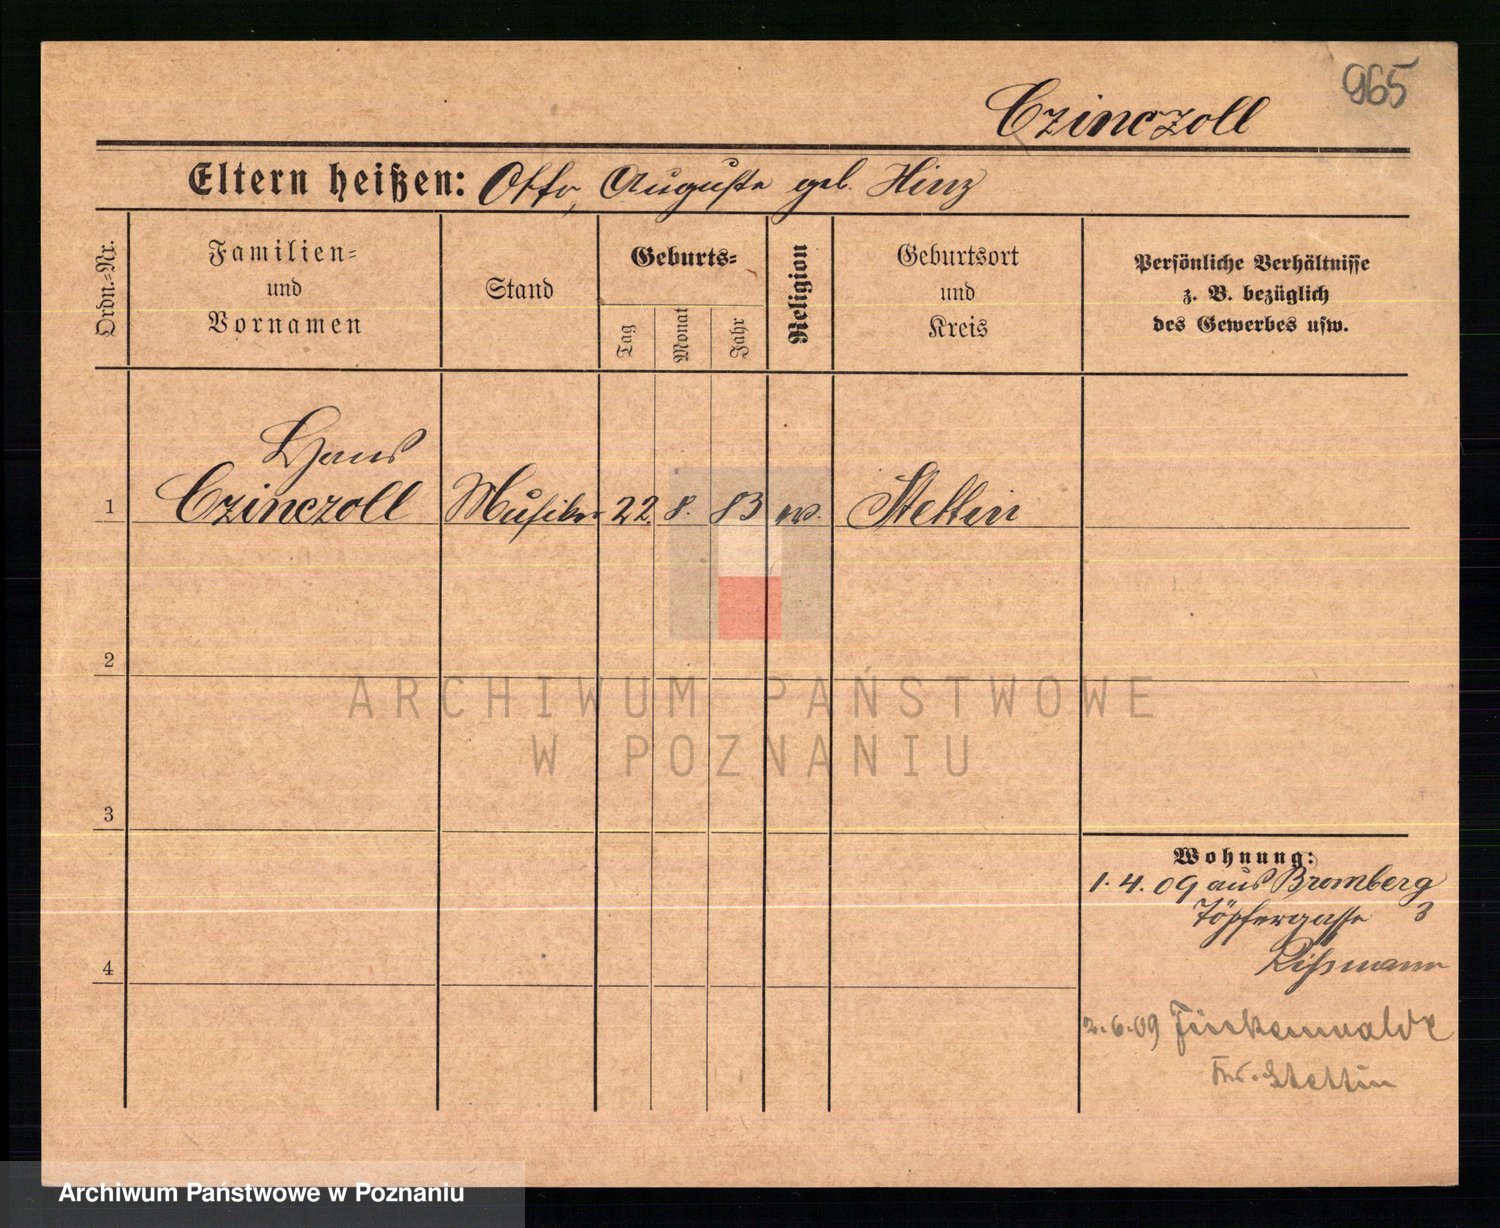 965
Czinczoll
Eltern heißen: Otto, Auguste geb. Hinz
Ordn.-Nr.
Familien-
und
Vornamen
Stand
Geburts-
Tag
Monat
Jahr
Religion
Geburtsort
und
Kreis
Persönliche Verhältnisse
z. B. bezüglich
des Gewerbes usw.
Hans
1 Czinczoll Musiker 22. 8. 83 ev. Stettin
2
3
4
Wohnung:
1. 4. 09 aus Bromberg
Töpfergasse 3
Lissmann
2.6.09 Finkenwalde
Kr. Stettin
ARCHIWUM PAŃSTWOWE
W POZNANIU
Archiwum Państwowe w Poznaniu